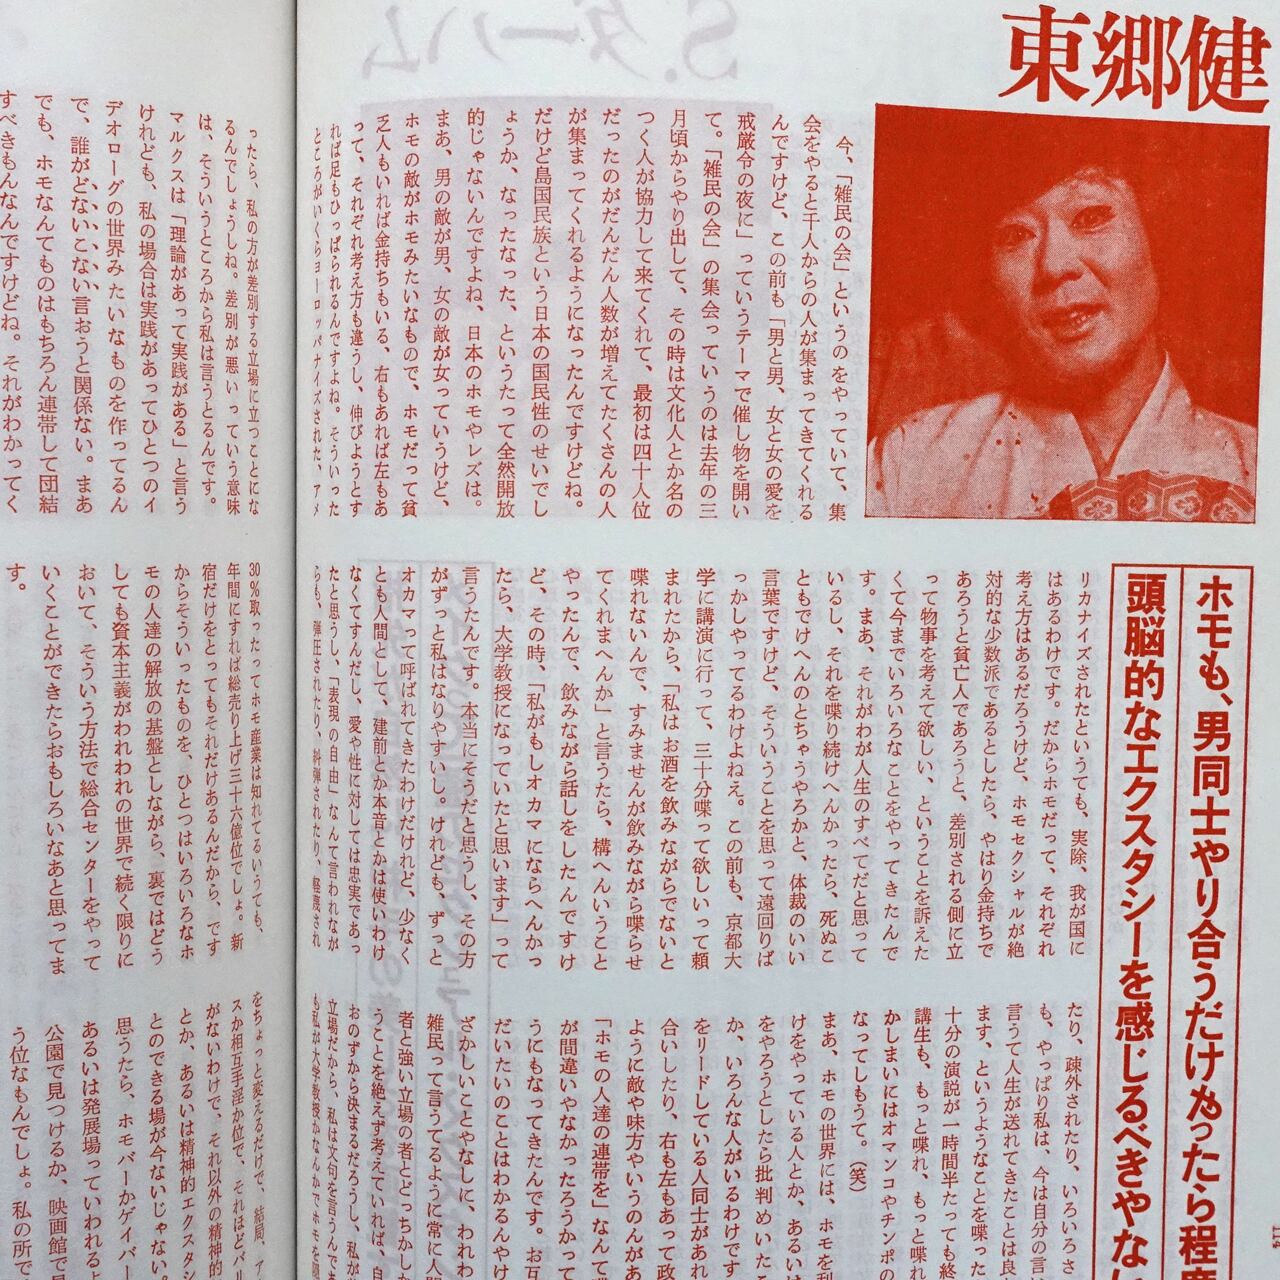 東郷健
ホモも、男同士やり合うだけやったら程
頭脳的なエクスタシーを感じるべきやな
今、「雑民の会」というのをやっていて、集
会をやると千人からの人が集まってきてくれる
んですけど、この前も「男と男、女と女の愛を
戒厳令の夜に」っていうテーマで催し物を開い
て。「雑民の会」の集会っていうのは去年の三
月頃からやり出して、その時は文化人とか名の
つく人が協力して来てくれて、最初は四十人位
だったのがだんだん人数が増えてたくさんの人
が集まってくれるようになったんですけどね。
だけど島国民族という日本の国民性のせいでし
ょうか、なったなった、というたって全然開放
的じゃないんですよね、日本のホモやレズは。
まあ、男の敵が男、女の敵が女っていうけど、
ホモの敵がホモみたいなもので、ホモだって貧
乏人もいれば金持ちもいる、右もあれば左もあ
って、それぞれ考え方も違うし、伸びようとす
れば足もひっぱられるんですよね。そういった
ところがいくらヨーロッパナイズされた、アメ
リカナイズされたというても、実際、我が国に
はあるわけです。だからホモだって、それぞれ
考え方はあるだろうけど、ホモセクシャルが絶
対的な少数派であるとしたら、やはり金持ちで
あろうと貧乏人であろうと、差別される側に立
って物事を考えて欲しい、ということを訴えた
くて今までいろいろなことをやってきたんで
す。まあ、それがわが人生のすべてだと思って
いるし、それを喋り続けへんかったら、死ぬこ
ともでけへんのとちゃうやろかと、体裁のいい
言葉ですけど、そういうことを思って遠回りば
っかしやってるわけよねえ。この前も、京都大
学に講演に行って、三十分喋って欲しいって頼
まれたから、「私はお酒を飲みながらでないと
喋れないんで、すみませんが飲みながら喋らせ
てくれまへんか」と言うたら、構へんいうこと
やったんで、飲みながら話しをしたんですけ
ど、その時、「私がもしオカマにならへんかっ
たら、大学教授になっていたと思います」って
言うたんです。本当にそうだと思うし、その方
がずっと私はなりやすいし。けれども、ずっと
オカマって呼ばれてきたわけだけれど、少なく
とも人間として、建前とか本音とかは使いわけ
なくてすんだし、愛や性に対しては忠実であっ
たと思うし、「表現の自由」なんて言われなが
らも、弾圧されたり、糾弾されたり、軽蔑され
たり、疎外されたり、いろいろさ
も、やっぱり私は、今は自分の言
言うて人生が送れてきたことは良
ます、というようなことを喋った
十分の演説が一時間半たっても終
講生も、もっと喋れ、もっと喋れ
かしまいにはオマンコやチンポの
なってしもうて。（笑）
まあ、ホモの世界には、ホモを利
けをやっている人とか、あるいは
をやろうとしたら批判めいたこ
か、いろんな人がいるわけです
ように敵や味方やいうのんがあ
をリードしている人同士があれ
合いしたり、右も左もあって政
「ホモの人達の連帯を」なんて
が間違いやなかったろうかって
うにもなってきたんです。お互
だいたいのことはわかるんやけ
ざかしいことやなしに、われわ
雑民って言うてるように常に人間
者と強い立場の者とどっちかした
うことを絶えず考えていれば、自
おのずから決まるだろうし、私が
立場だから、私は文句を言うんで
も私が大学教授かなんかでホモを
ったら、私の方が差別する立場に立つことにな
るんでしょうしね。差別が悪いっていう意味
は、そういうところから私は言うとるんです。
マルクスは「理論があって実践がある」と言う
けれども、私の場合は実践があってひとつのイ
デオローグの世界みたいなものを作ってるん
で、誰がどないこない言おうと関係ない。まあ
でも、ホモなんてものはもちろん連帯して団結
すべきもんなんですけどね。それがわかってく
30％取ったってホモ産業は知れてるいうても、
年間にすれば総売り上げ三十六億位でしょ。新
宿だけをとってもそれだけあるんだから、です
からそういったものを、ひとつはいろいろなホ
モの人達の解放の基盤としながら、裏ではどう
しても資本主義がわれわれの世界で続く限りに
おいて、そういう方法で総合センターをやって
いくことができたらおもしろいなあと思ってま
す。
をちょっと変えるだけで、結局、ア
スか相互手淫か位で、それほどバリ
がないわけで、それ以外の精神的
とか、あるいは精神的エクスタシ
とのできる場が今ないじゃない。
思うたら、ホモバーかゲイバー
あるいは発展場っていわれるよ
公園で見つけるか、映画館で見
う位なもんでしょ。私の所で